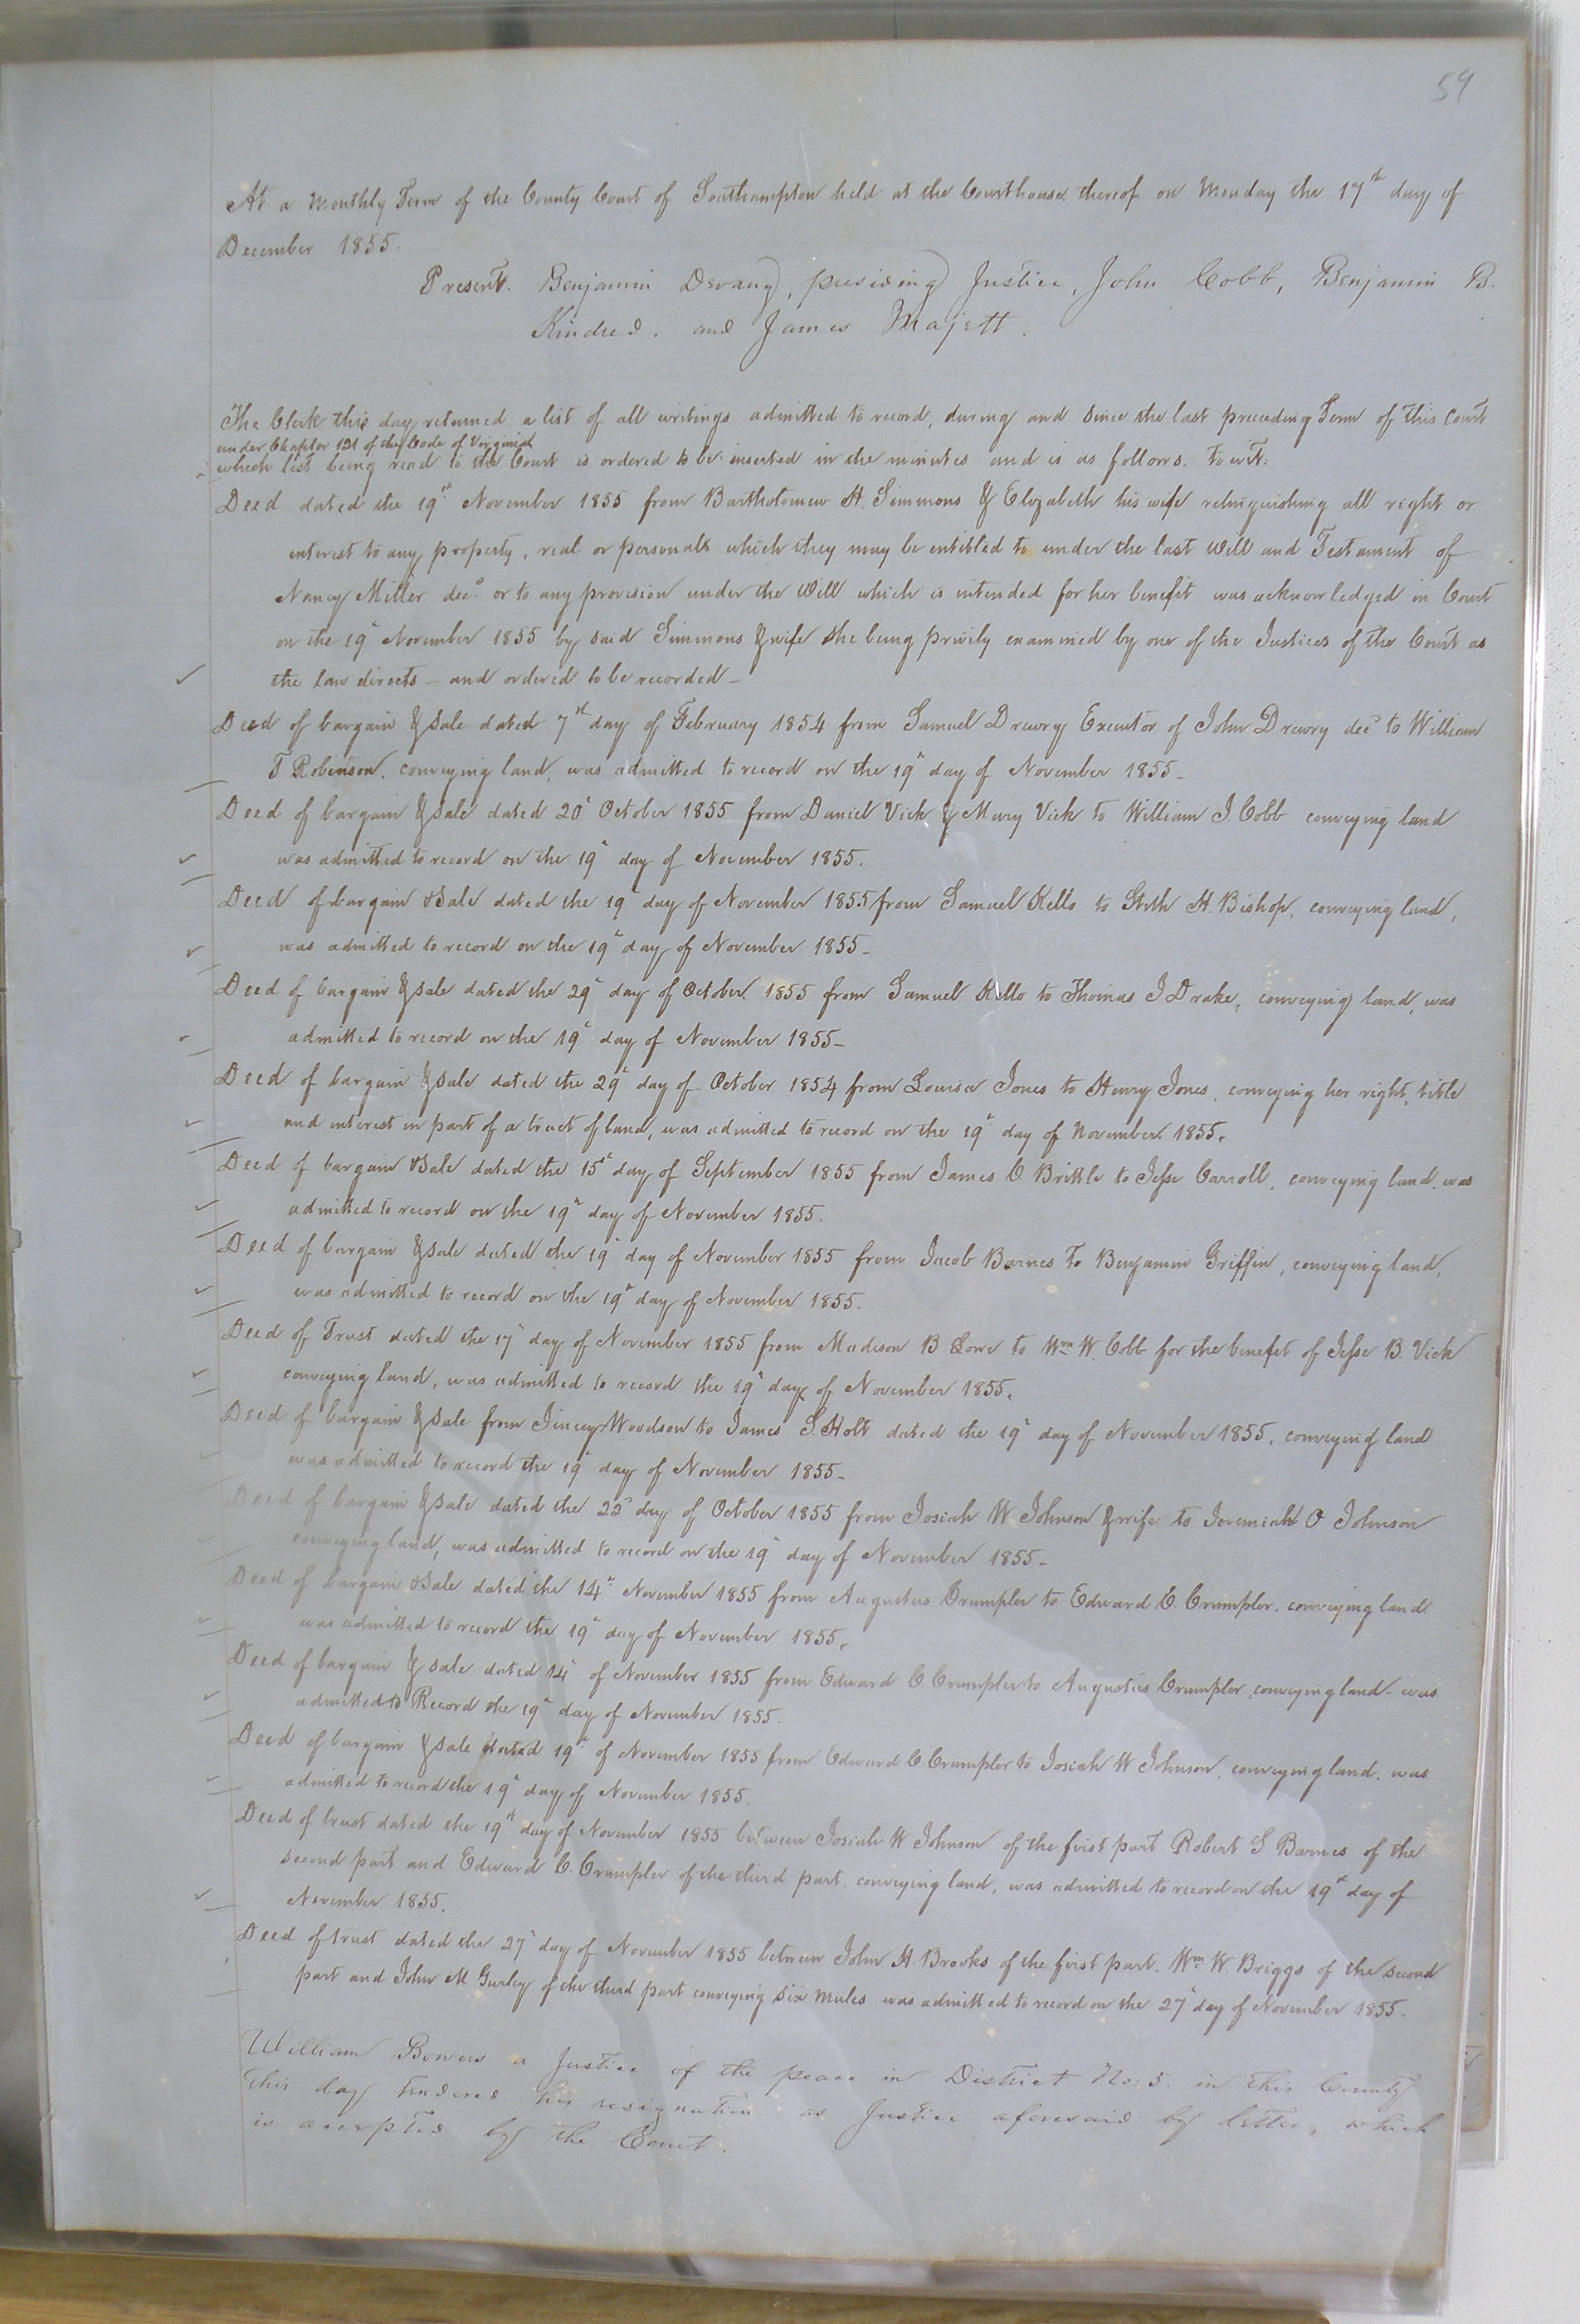 59
At a Monthly Term of the County Court of Southampton held at the Courthouse thereof on Monday the 17th day of
December 1855.
Present. Benjamin Devany, presiding Justice, John Cobb, Benjamin B.
Kindred. and James Majett.
The Clerk this day returned a list of all writings admitted to record, during and since the last preceding Term of this Court
under Chapter 121 of the Code of Virginia
which list being read to the Court is ordered to be inserted in the minutes and is as follows. to wit:
Deed dated the 19th November 1855 from Bartholomew H. Simmons & Elizabeth his wife relinquishing all right or
interest to any property, real or personal which they may be entitled to under the last will and Testament of
Nancy Miller decd. or to any provision under the Will which is intended for her benefit was acknowledged in Court
on the 19th November 1855 by said Simmons & wife she being privily examined by one of the Justices of the Court as
the law directs - and ordered to be recorded -
Deed of bargain & Sale dated 7th day of February 1854 from Samuel Drewry Executor of John Drewry decd to William
T Robinson. conveying land, was admitted to record on the 19th day of November 1855 -
Deed of bargain & Sale dated 20th October 1855 from Daniel Vick & Mary Vick to William J. Cobb conveying land
was admitted to record on the 19th day of November 1855.
Deed of bargain & Sale dated the 19th day of November 1855 from Samuel Kello to Stith H. Bishop, conveying land,
was admitted to record on the 19th day of November 1855 -
Deed of bargain & Sale dated the 29th day of October 1855 from Samuel Kello to Thomas J Drake, conveying land, was
admitted to record on the 19th day of November 1855 -
Deed of bargain & Sale dated the 29th day of October 1854 from Louisa Jones to Henry Jones, conveying her right, title
and interest in part of a tract of land, was admitted to record on the 19th day of November 1855.
Deed of bargain & Sale dated the 15th day of September 1855 from James C. Brittle to Jesse Carroll, conveying land. was
admitted to record on the 19th day of November 1855.
Deed of bargain & Sale dated the 19 day of November 1855 from Jacob Barnes to Benjamin Griffin, conveying land,
was admitted to record on the 19th day of November 1855.
Deed of Trust dated the 17th day of November 1855 from Madison B Lowe to Wm W. Cobb for the benefit of Jesse B. Vick
conveying land, was admitted to record the 19th day of November 1855.
Deed of bargain & Sale from Jincey Woodson to James S. Holt dated the 19th day of November 1855, conveying land
was admitted to record the 19 day of November 1855 -
Deed of bargain & Sale dated the 22d day of October 1855 from Josiah W Johnson & wife to Jeremiah O Johnson
conveying land, was admitted to record on the 19th day of November 1855 -
Deed of bargain & Sale dated the 14th November 1855 from Augustus Crumpler to Edward C. Crumpler. conveying land
was admitted to record the 19th day of November 1855.
Deed of bargain & Sale dated 14th of November 1855 from Edward C Crumpler to Augustus Crumpler, conveying land - was
admitted to Record the 19th day of November 1855.
Deed of bargain & Sale dated 19th of November 1855 from Edward C Crumpler to Josiah W Johnson. conveying land. was
admitted to record the 19th day of November 1855.
Deed of trust dated the 19th day of November 1855 between Josiah W Johnson of the first part Robert S Barnes of the
second part and Edward C. Crumpler of the third part. conveying land, was admitted to record on the 19th day of
November 1855.
Deed of trust dated the 27th day of November 1855 between John H. Brooks of the first part. Wm W. Briggs of the second
part and John M Gurley of the third part conveying six mules was admitted to record on the 27th day of November 1855.
William Bowers a Justice of the peace in District No: 5. in this County
this day tendered his resignation as Justice aforesaid by letter, which
is accepted by the Court.